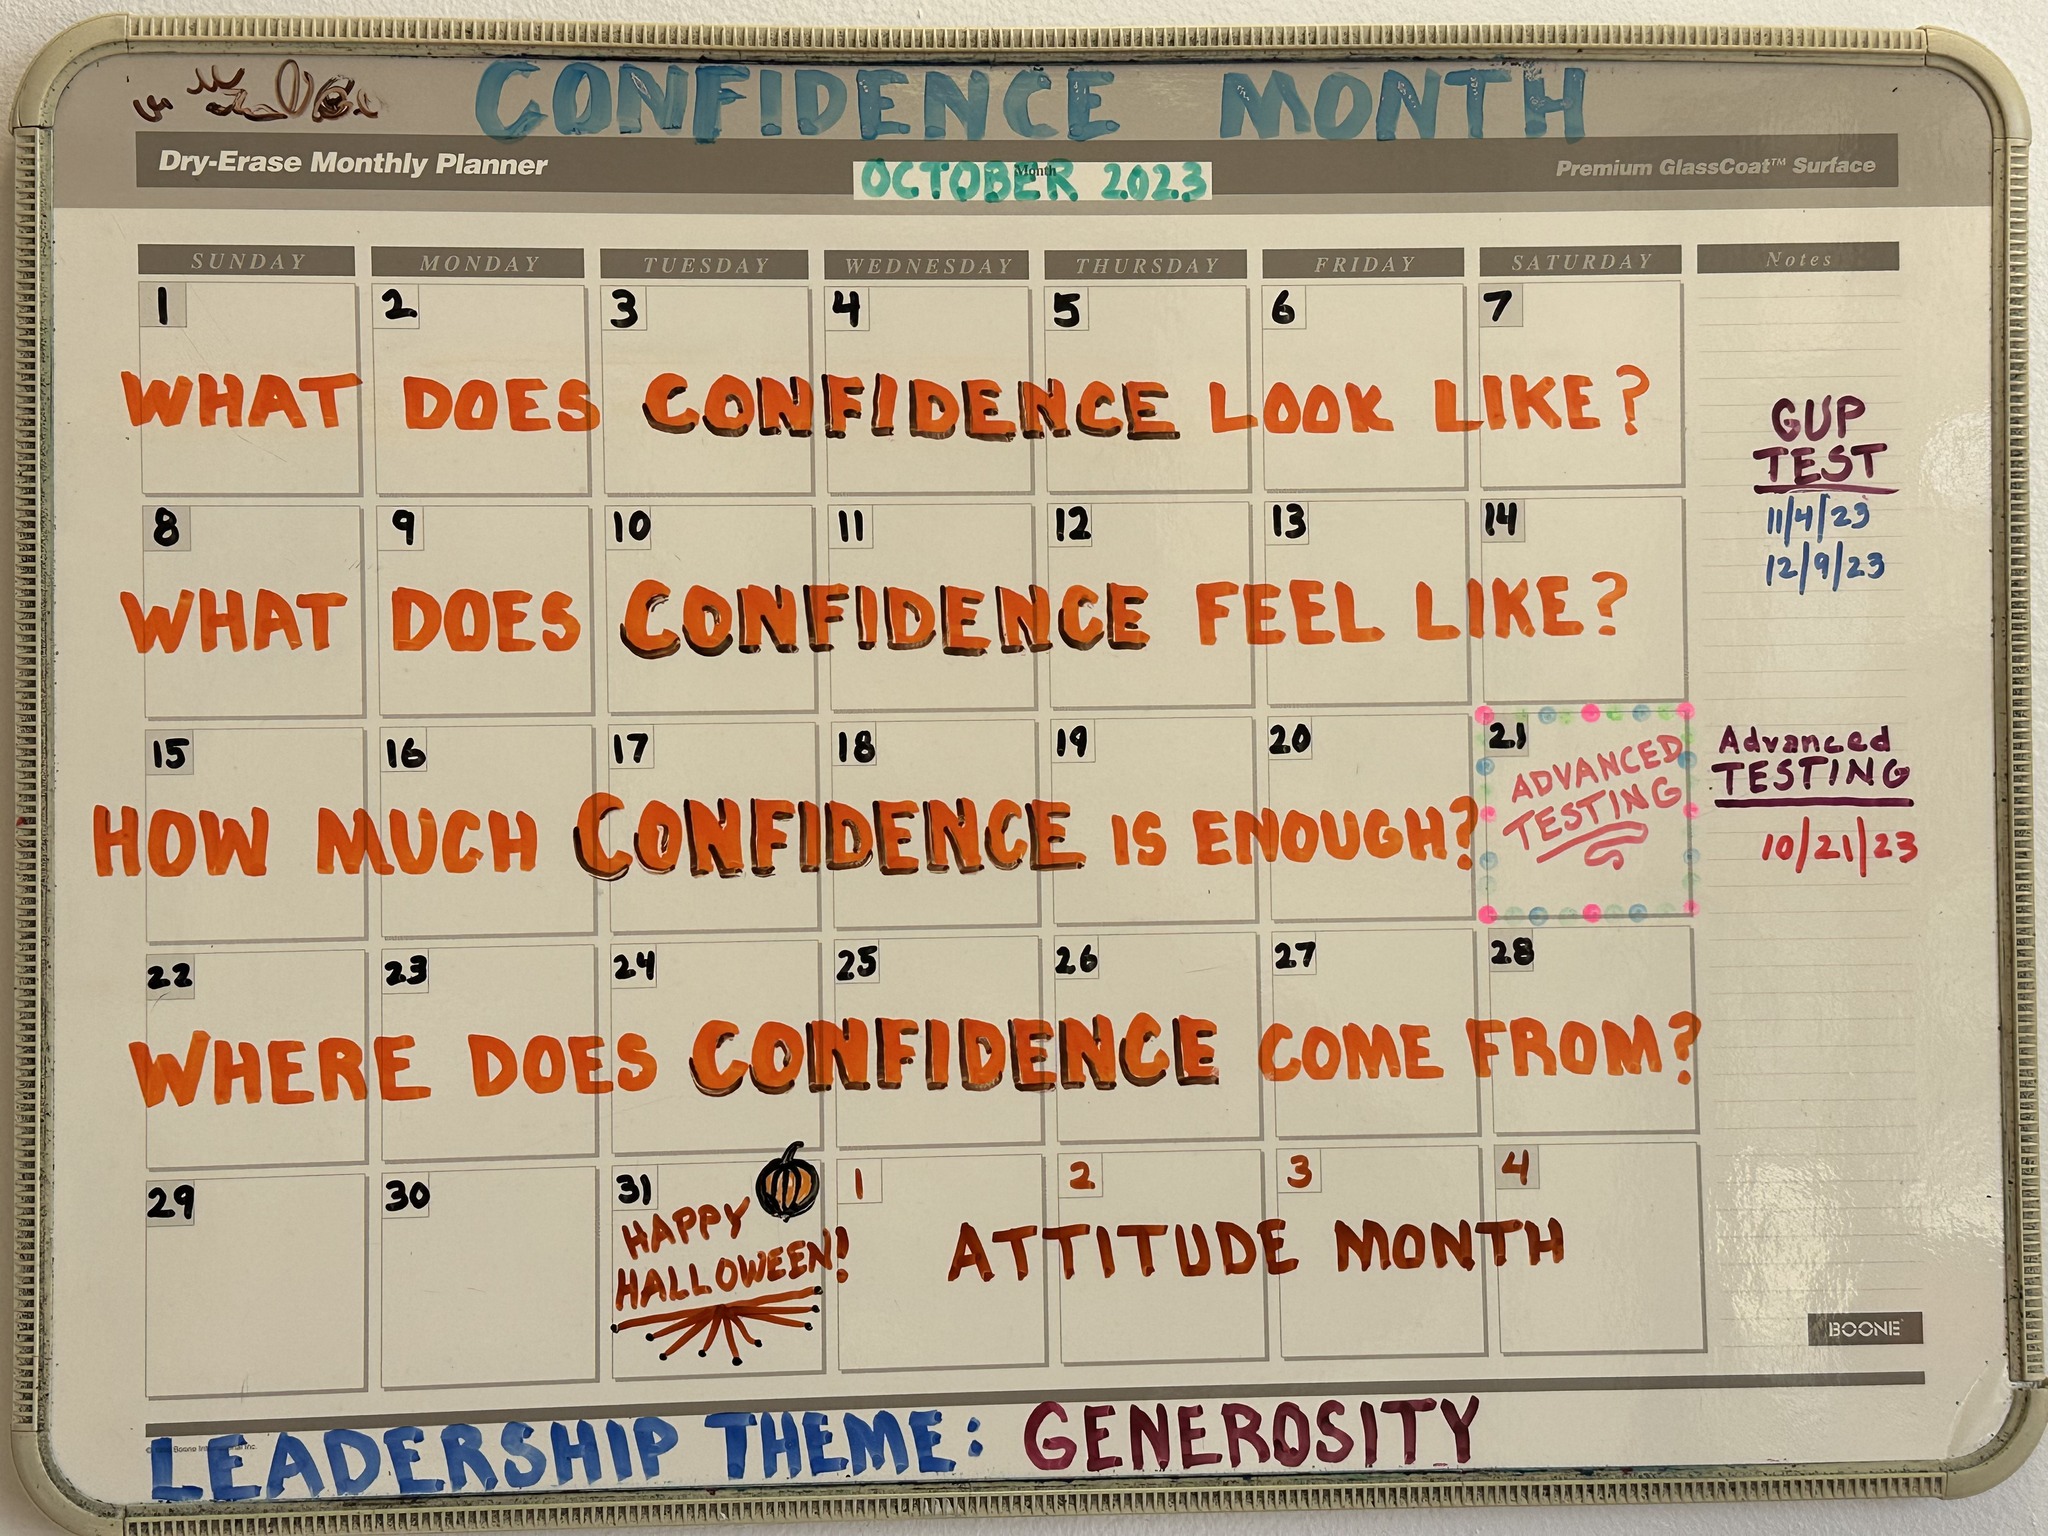 CONFIDENCE MONTH
Dry-Erase Monthly Planner
Month
OCTOBER 2023
Premium GlassCoat™ Surface
SUNDAY MONDAY TUESDAY WEDNESDAY THURSDAY FRIDAY SATURDAY Notes
1 2 3 4 5 6 7
WHAT DOES CONFIDENCE LOOK LIKE?
GUP
TEST
11/4/23
12/9/23
8 9 10 11 12 13 14
WHAT DOES CONFIDENCE FEEL LIKE?
15 16 17 18 19 20 21
HOW MUCH CONFIDENCE IS ENOUGH?
ADVANCED
TESTING
Advanced
TESTING
10/21/23
22 23 24 25 26 27 28
WHERE DOES CONFIDENCE COME FROM?
29 30 31 1 2 3 4
HAPPY
HALLOWEEN!
ATTITUDE MONTH
BOONE
LEADERSHIP THEME: GENEROSITY
Boone International Inc.